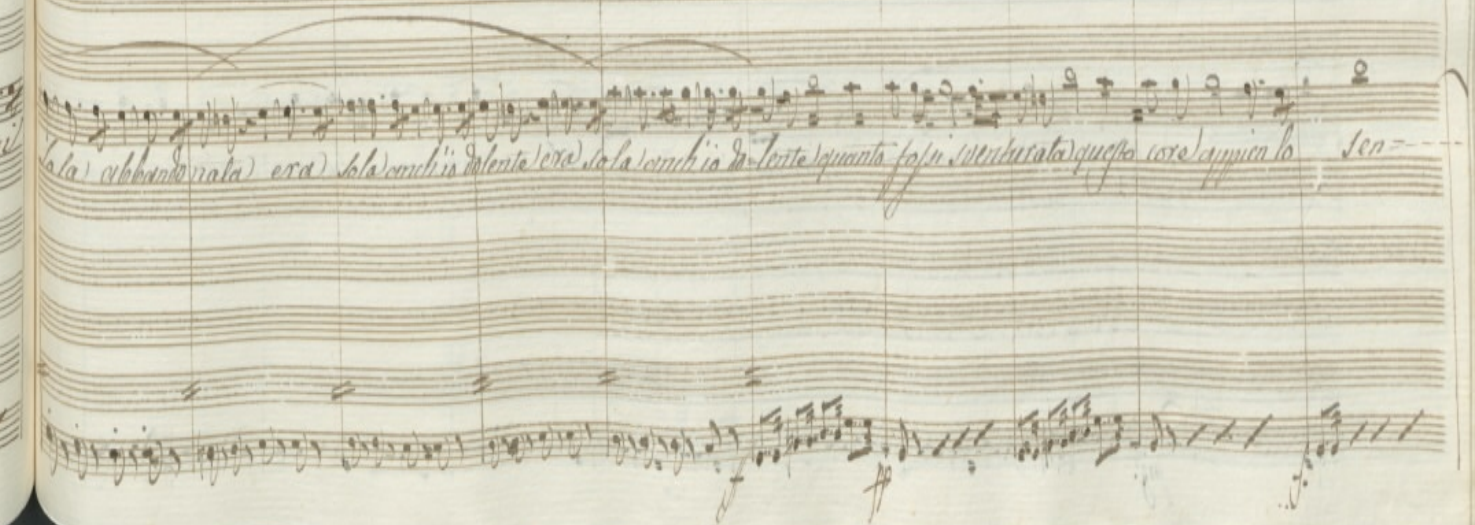 la abbandonata era sola anch'io dolente era sola anch'io do-lente quanto fossi sventurata questo core appien lo sen=
f ff f